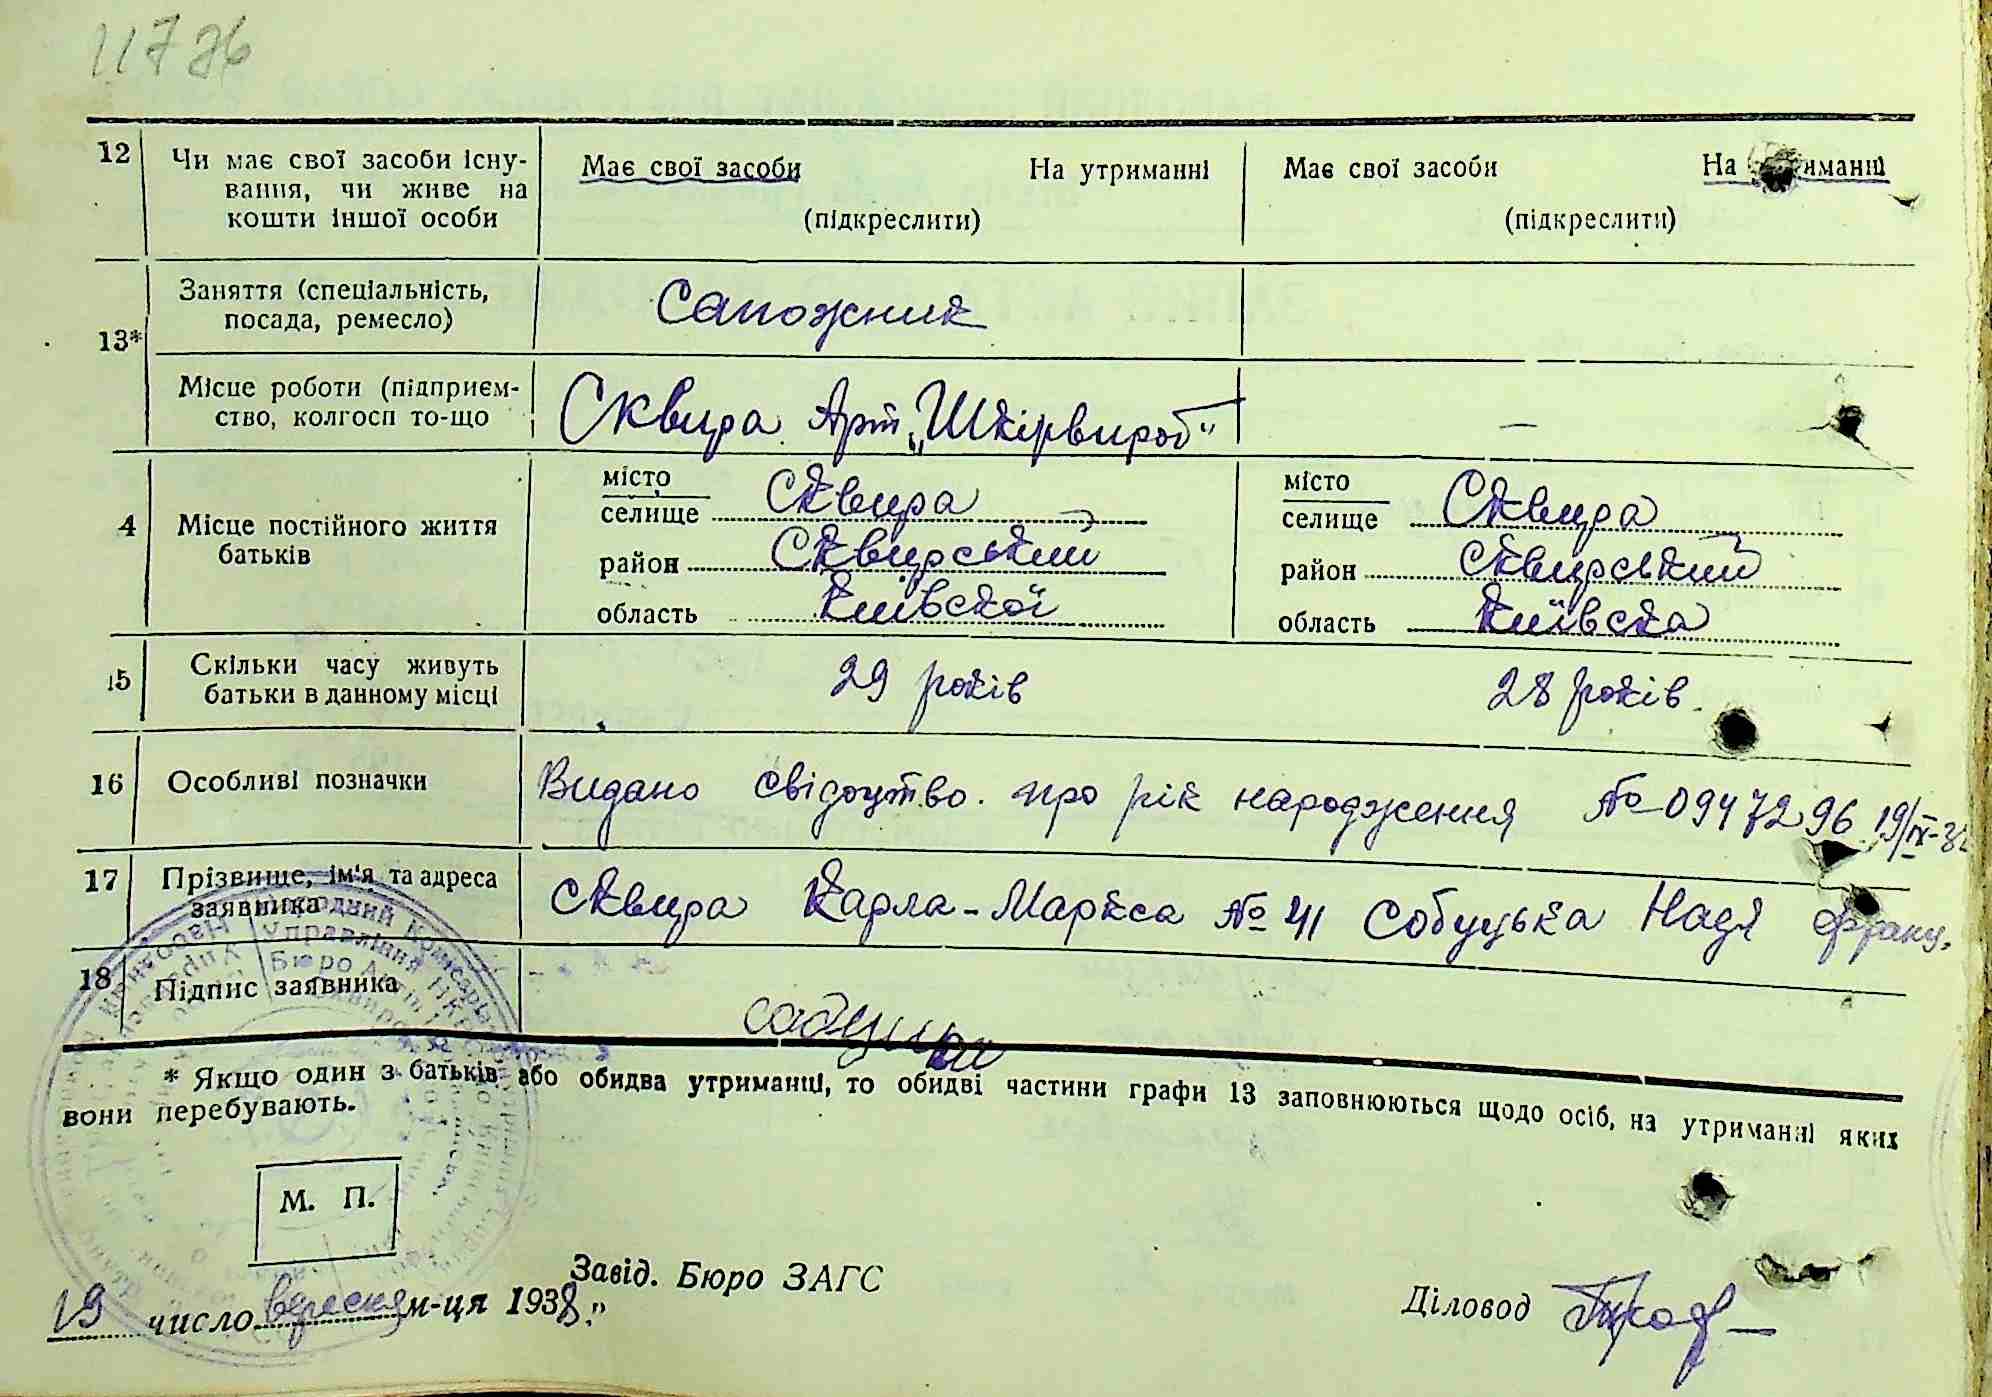 11776
12 Чи має свої засоби існу-
вання, чи живе на
кошти іншої особи
Має свої засоби На утриманні
(підкреслити)
Має свої засоби На иманні
(підкреслити)
13*
Заняття (спеціальність,
посада, ремесло)
Сапожник
Місце роботи (підприєм-
ство, колгосп то-що
Сквира Арт. „Шкірвироб"
—
4 Місце постійного життя
батьків
місто
селище Сквира
район Сквирський
область Київської
місто
селище Сквира
район Сквирський
область Київска
15 Скільки часу живуть
батьки в данному місці
29 років
28 років.
16 Особливі позначки
Видано свідоцтво про рік народження № 0947296 19/IX-3
17 Прізвище, ім'я та адреса
заявника
Сквира Карла-Маркса № 41 Собуцька Надя Франц.
18 Підпис заявника
* Якщо один з батьків або обидва утриманці, то обидві частини графи 13 заповнюються щодо осіб, на утриманні яких
вони перебувають.
М. П.
Завід. Бюро ЗАГС
19 число вересня м-ця 1938 „
Діловод